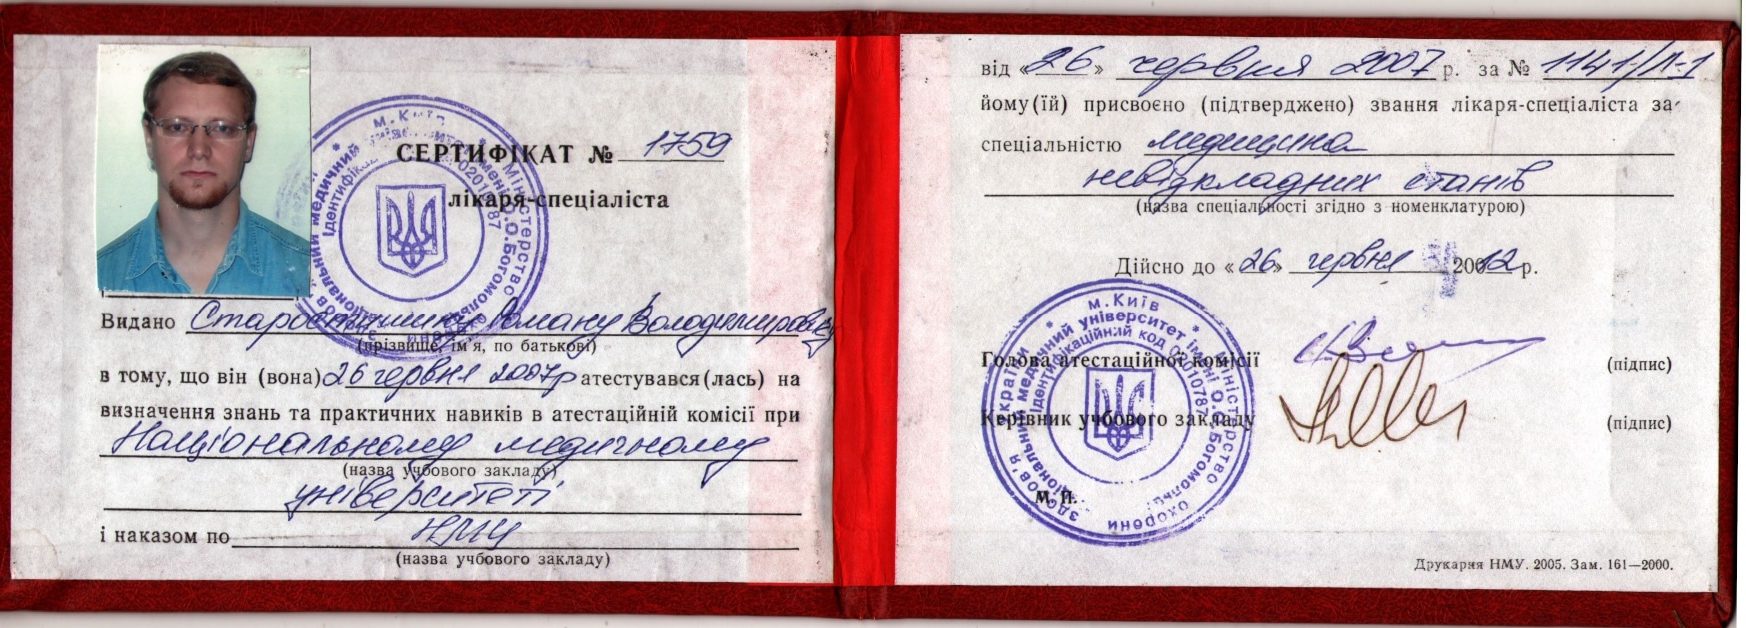 СЕРТИФІКАТ № 1759
лікаря-спеціаліста
Видано Роману Володимировичу
(прізвище, ім'я, по батькові)
в тому, що він (вона) 26 червня 2007р атестувався(лась) на
визначення знань та практичних навиків в атестаційній комісії при
Національному медичному
(назва учбового закладу)
університеті
і наказом по НМУ
(назва учбового закладу)
від «26» червня 2007 р. за № 1141/Л-1
йому(їй) присвоєно (підтверджено) звання лікаря-спеціаліста за
спеціальністю медицина
невідкладних станів
(назва спеціальності згідно з номенклатурою)
Дійсно до «26» червня 2012 р.
Голова атестаційної комісії (підпис)
Керівник учбового закладу (підпис)
М. П.
м. Київ
Міністерство охорони здоров'я України
Національний медичний університет імені О.О.Богомольця
Ідентифікаційний код 02010787
Друкарня НМУ. 2005. Зам. 161—2000.